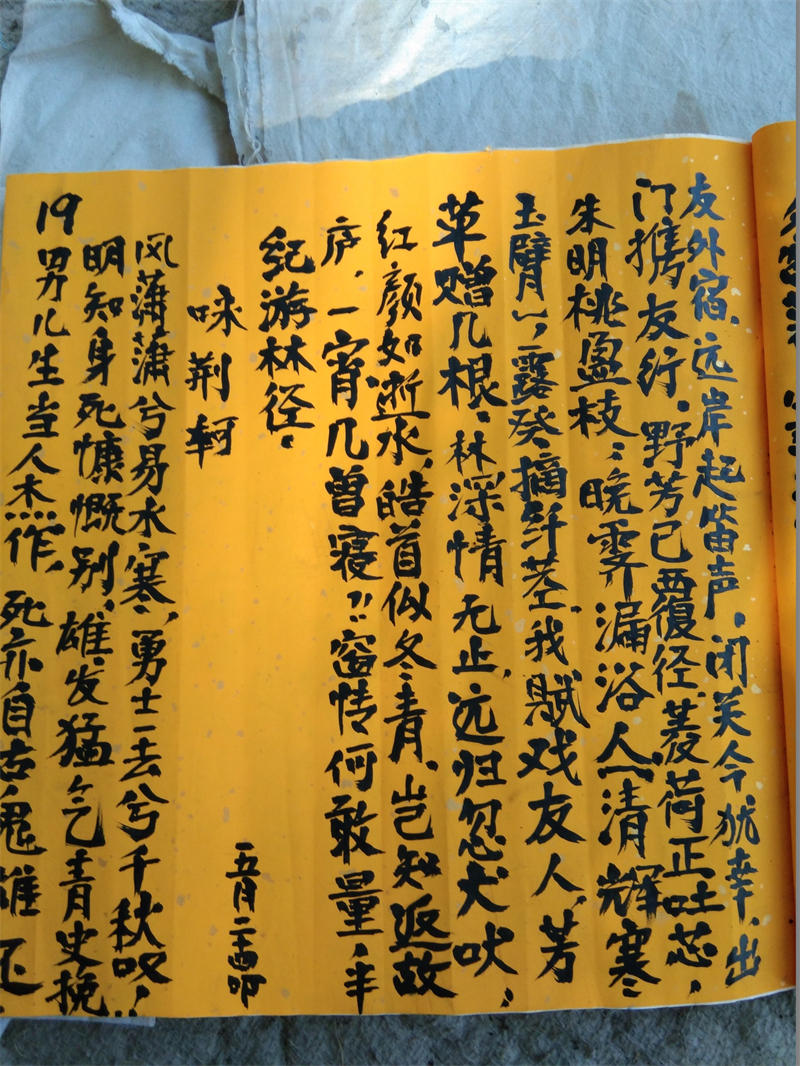 友外宿。远岸起笛声。闭关今犹幸、出
门携友行。野芳已覆径、菱荷正吐芯,
朱明桃盈枝;晚霁漏浴人、清辉寒
玉臂,露癸摘纤茎、我赋戏友人、芳
草赠几根。林深情无止,远归忽犬吠,
红颜如逝水,皓首似冬青、岂知返故
庐,一宵几曾寝?!窗情何敢量,丰
纪游林径。
咏荆轲
五月二十四日
风萧萧兮易水寒,勇士一去兮千秋叹!
明知身死慷慨别,雄发猛气青史挽
19男儿生当人杰作,死亦自古鬼雄